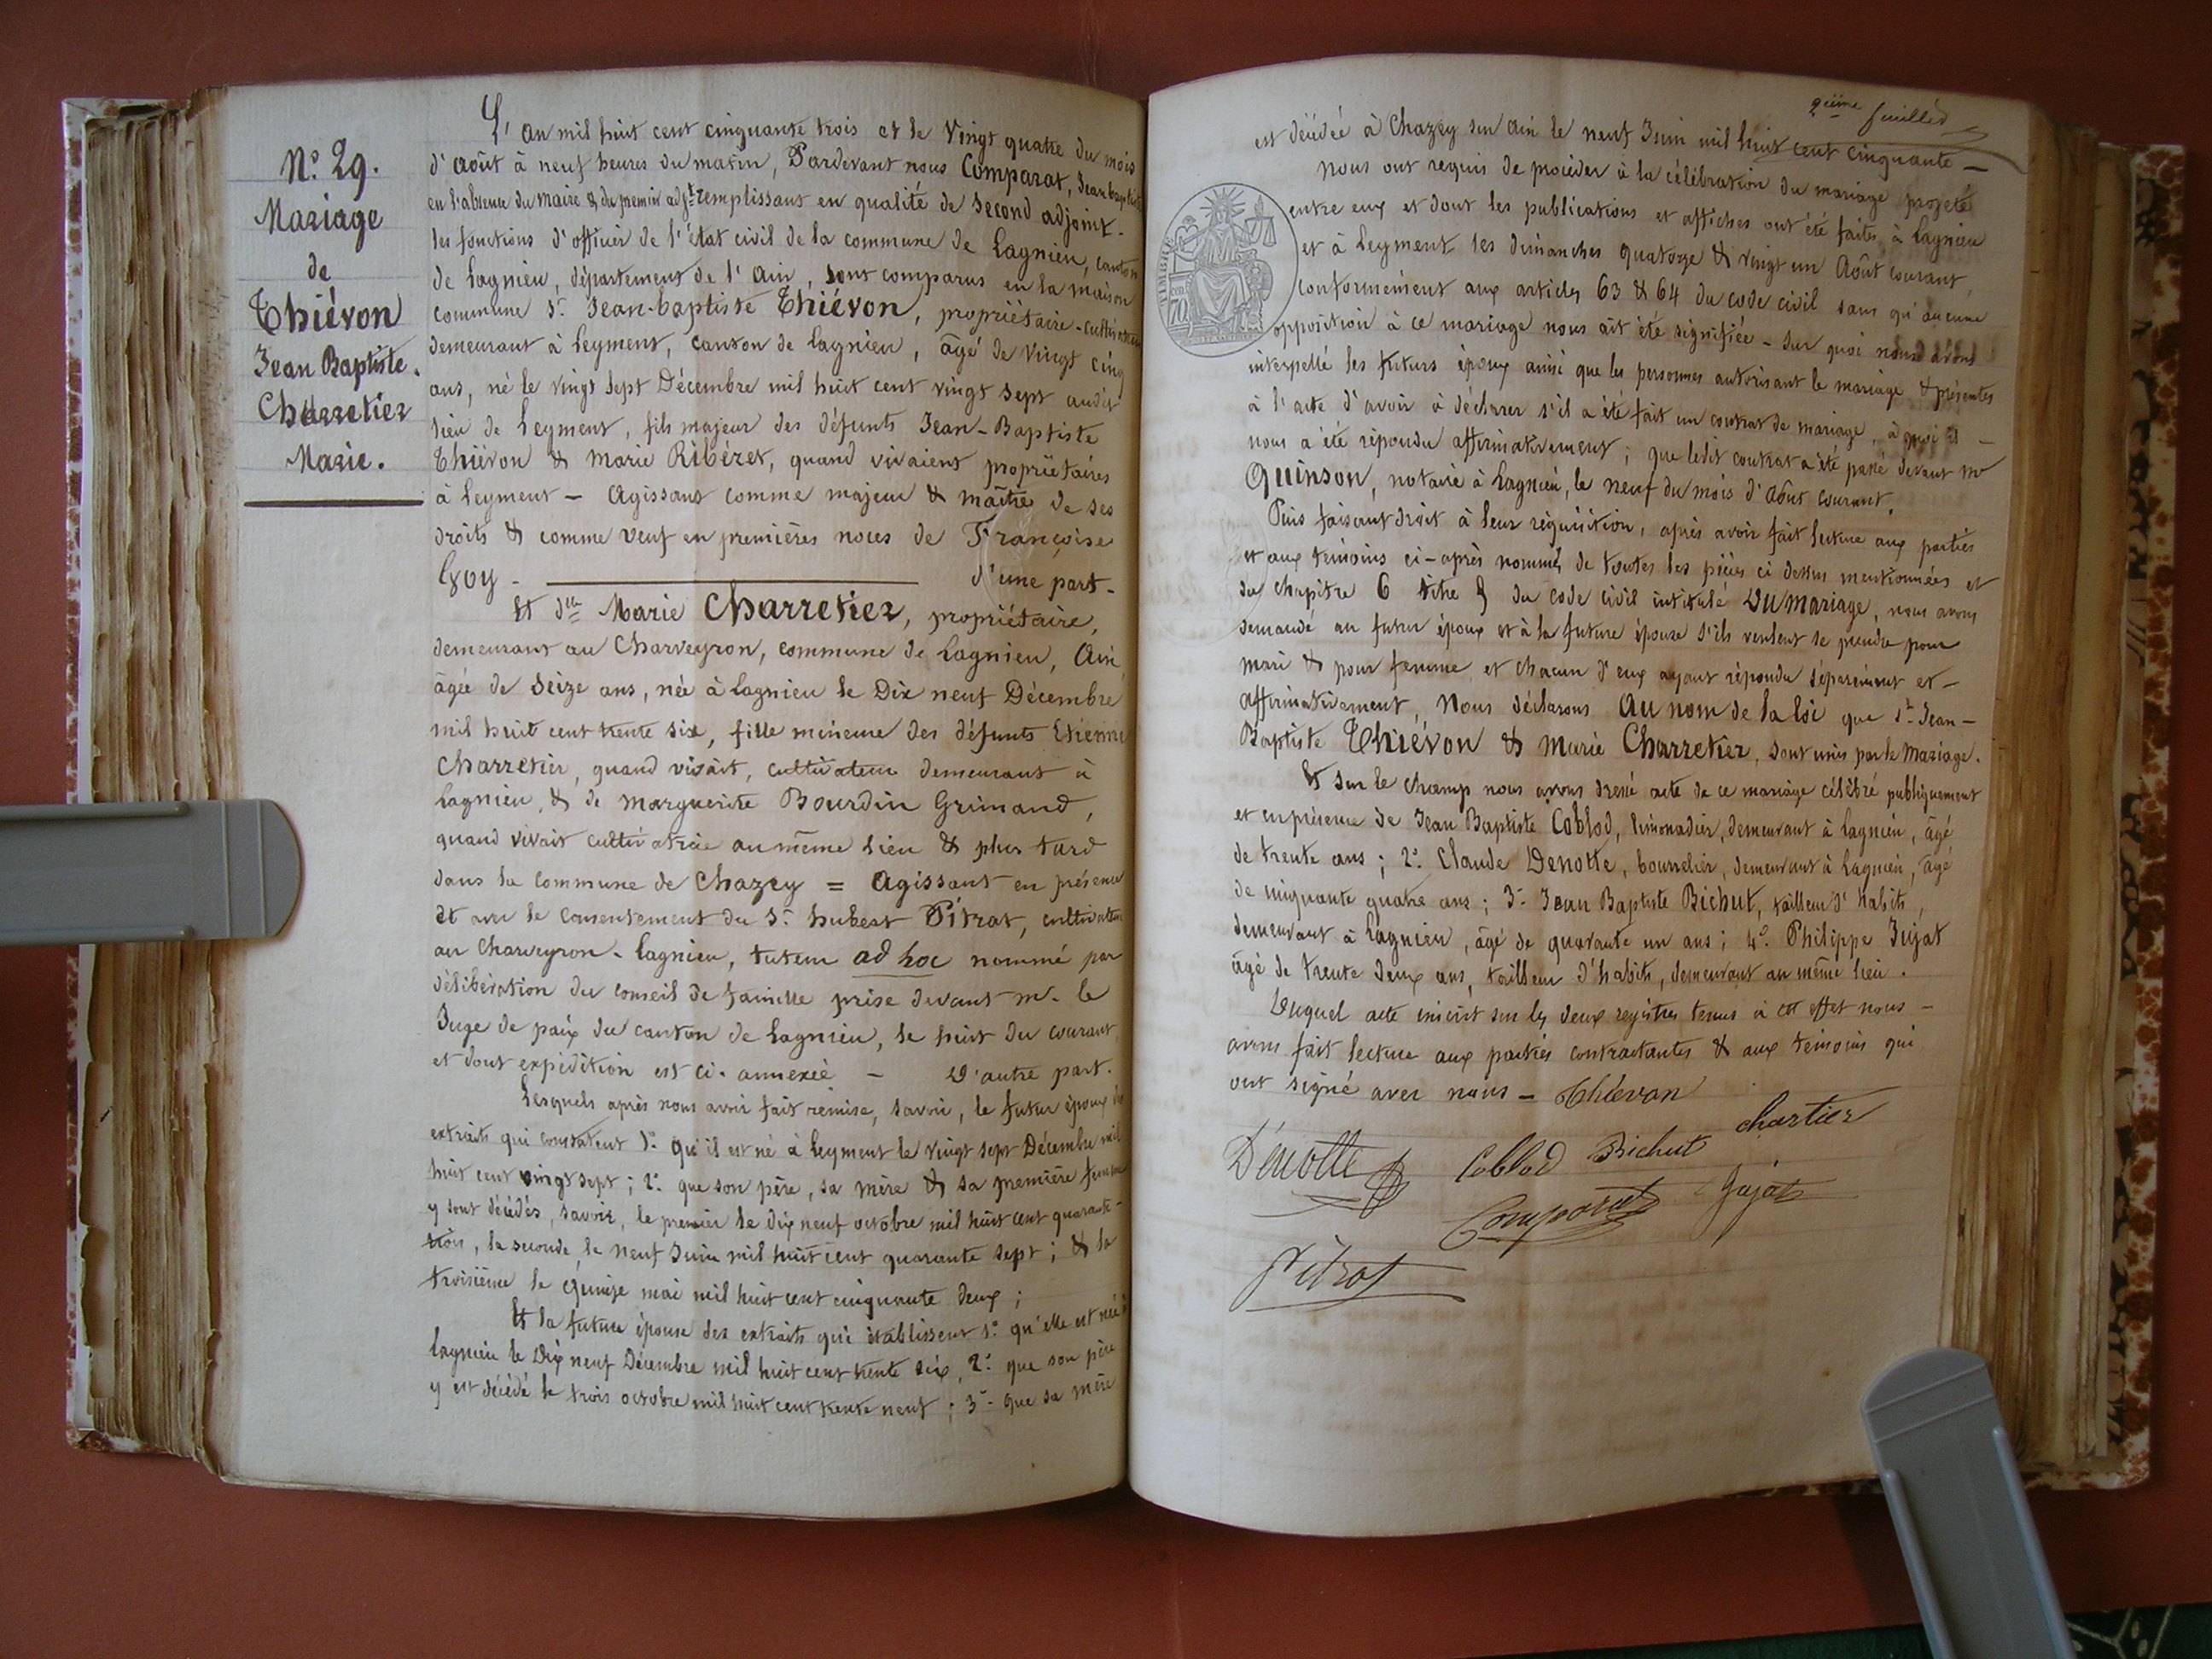 N.° 29.
Mariage
de
Thiévon
Jean Baptiste.
Charretier
Marie.
L'an mil huit cent cinquante trois et le Vingt quatre du mois
d'Août à neuf heures du matin, Pardevant nous Comparat, Jean baptiste
en l'absence du maire & du premier adjt remplissant en qualité de Second adjoint-
les fonctions d'officier de l'état civil de la commune de Lagnieu, canton
de Lagnieu, département de l'Ain, sont comparus en la maison
commune Sr. Jean-baptiste Thiévon, propriétaire-cultivateur
demeurant à Leyment, canton de Lagnieu, âgé de Vingt cinq
ans, né le vingt sept Décembre mil huit cent vingt sept audit
lieu de Leyment, fils majeur des défunts Jean-Baptiste
Thiévon & Marie Ribéret, quand vivaient propriétaires
à Leyment - Agissant comme majeur & maître de ses
droits & comme veuf en premières noces de Françoise
Goy - d'une part-
Et dlle Marie Charretier, propriétaire,
demeurant au Charveyron, commune de Lagnieu, Ain,
âgée de Seize ans, née à Lagnieu le Dix neuf Décembre
mil huit cent trente six, fille mineure des défunts Etienne
Charretier, quand vivait, cultivateur demeurant à
Lagnieu, & de Marguerite Bourdin Grimand,
quand vivait cultivatrice au même lieu & plus tard
dans la commune de Chazey = Agissant en présence
et avec le consentement du Sr. hubert Pitrat, cultivateur
au Charveyron-Lagnieu, tuteur ad hoc nommé par
délibération du conseil de famille prise devant mr. le
Juge de paix du canton de Lagnieu, le huit du courant
et dont expédition est ci-annexée - D'autre part.
Lesquels après nous avoir fait remise, savoir, le futur époux des
extraits qui constatent 1°. qu'il est né à Leyment le vingt sept Décembre mil
huit cent vingt sept ; 2°. que son père, sa mère & sa première femme
y sont décédés, savoir, le premier le dix neuf octobre mil huit cent quarante-
trois, la seconde, le neuf Juin mil huit cent quarante sept ; & la
troisième le quinze mai mil huit cent cinquante deux ;
Et la future épouse des extraits qui établissent 1°. qu'elle est née à
Lagnieu le Dix neuf Décembre mil huit cent trente six, 2°. que son père
y est décédé le trois octobre mil huit cent trente neuf ; 3°- que sa mère
2ième feuillet
est décédée à Chazey sur Ain le neuf Juin mil huit cent cinquante -
Nous ont requis de procéder à la célébration du mariage projeté
entre eux et dont les publications et affiches ont été faites à Lagnieu
et à Leyment les dimanches quatorze & vingt un Août courant,
conformément aux articles 63 & 64 du code civil sans qu'aucune
opposition à ce mariage nous ait été signifiée - Sur quoi nous avons
interpellé les futurs époux ainsi que les personnes autorisant le mariage & présentes
à l'acte d'avoir à déclarer s'il a été fait un contrat de mariage, à quoi il -
nous a été répondu affirmativement ; que ledit contrat a été passé devant Me
Quinson, notaire à Lagnieu, le neuf du mois d'Août courant.
Puis faisant droit à leur réquisition, après avoir fait lecture aux parties
et aux témoins ci-après nommés de toutes les pièces ci dessus mentionnées et
du chapitre 6 titre 5 du code civil intitulé Du mariage, nous avons
demandé au futur époux et à la future épouse s'ils veulent se prendre pour
mari & pour femme, et chacun d'eux ayant répondu séparément et-
affirmativement, Nous déclarons Au nom de la loi que Sr. Jean-
Baptiste Thiévon & Marie Charretier, sont unis par le Mariage.
Et sur le champ nous avons dressé acte de ce mariage célébré publiquement
et en présence de Jean Baptiste Coblod, limonadier, demeurant à Lagnieu, âgé
de trente ans ; 2°. Claude Denotte, bourrelier, demeurant à Lagnieu, âgé
de cinquante quatre ans ; 3°- Jean Baptiste Bichut, tailleur d'habits,
demeurant à Lagnieu, âgé de quarante un ans ; 4°. Philippe Jujat
âgé de trente deux ans, tailleur d'habits, demeurant au même lieu.
Duquel acte inscrit sur les deux registres tenus à cet effet nous -
avons fait lecture aux parties contractantes & aux témoins qui
ont signé avec nous - Thiévon
chartier
Dénotte Coblod Bichut
Comparat Jujat
Pitrat